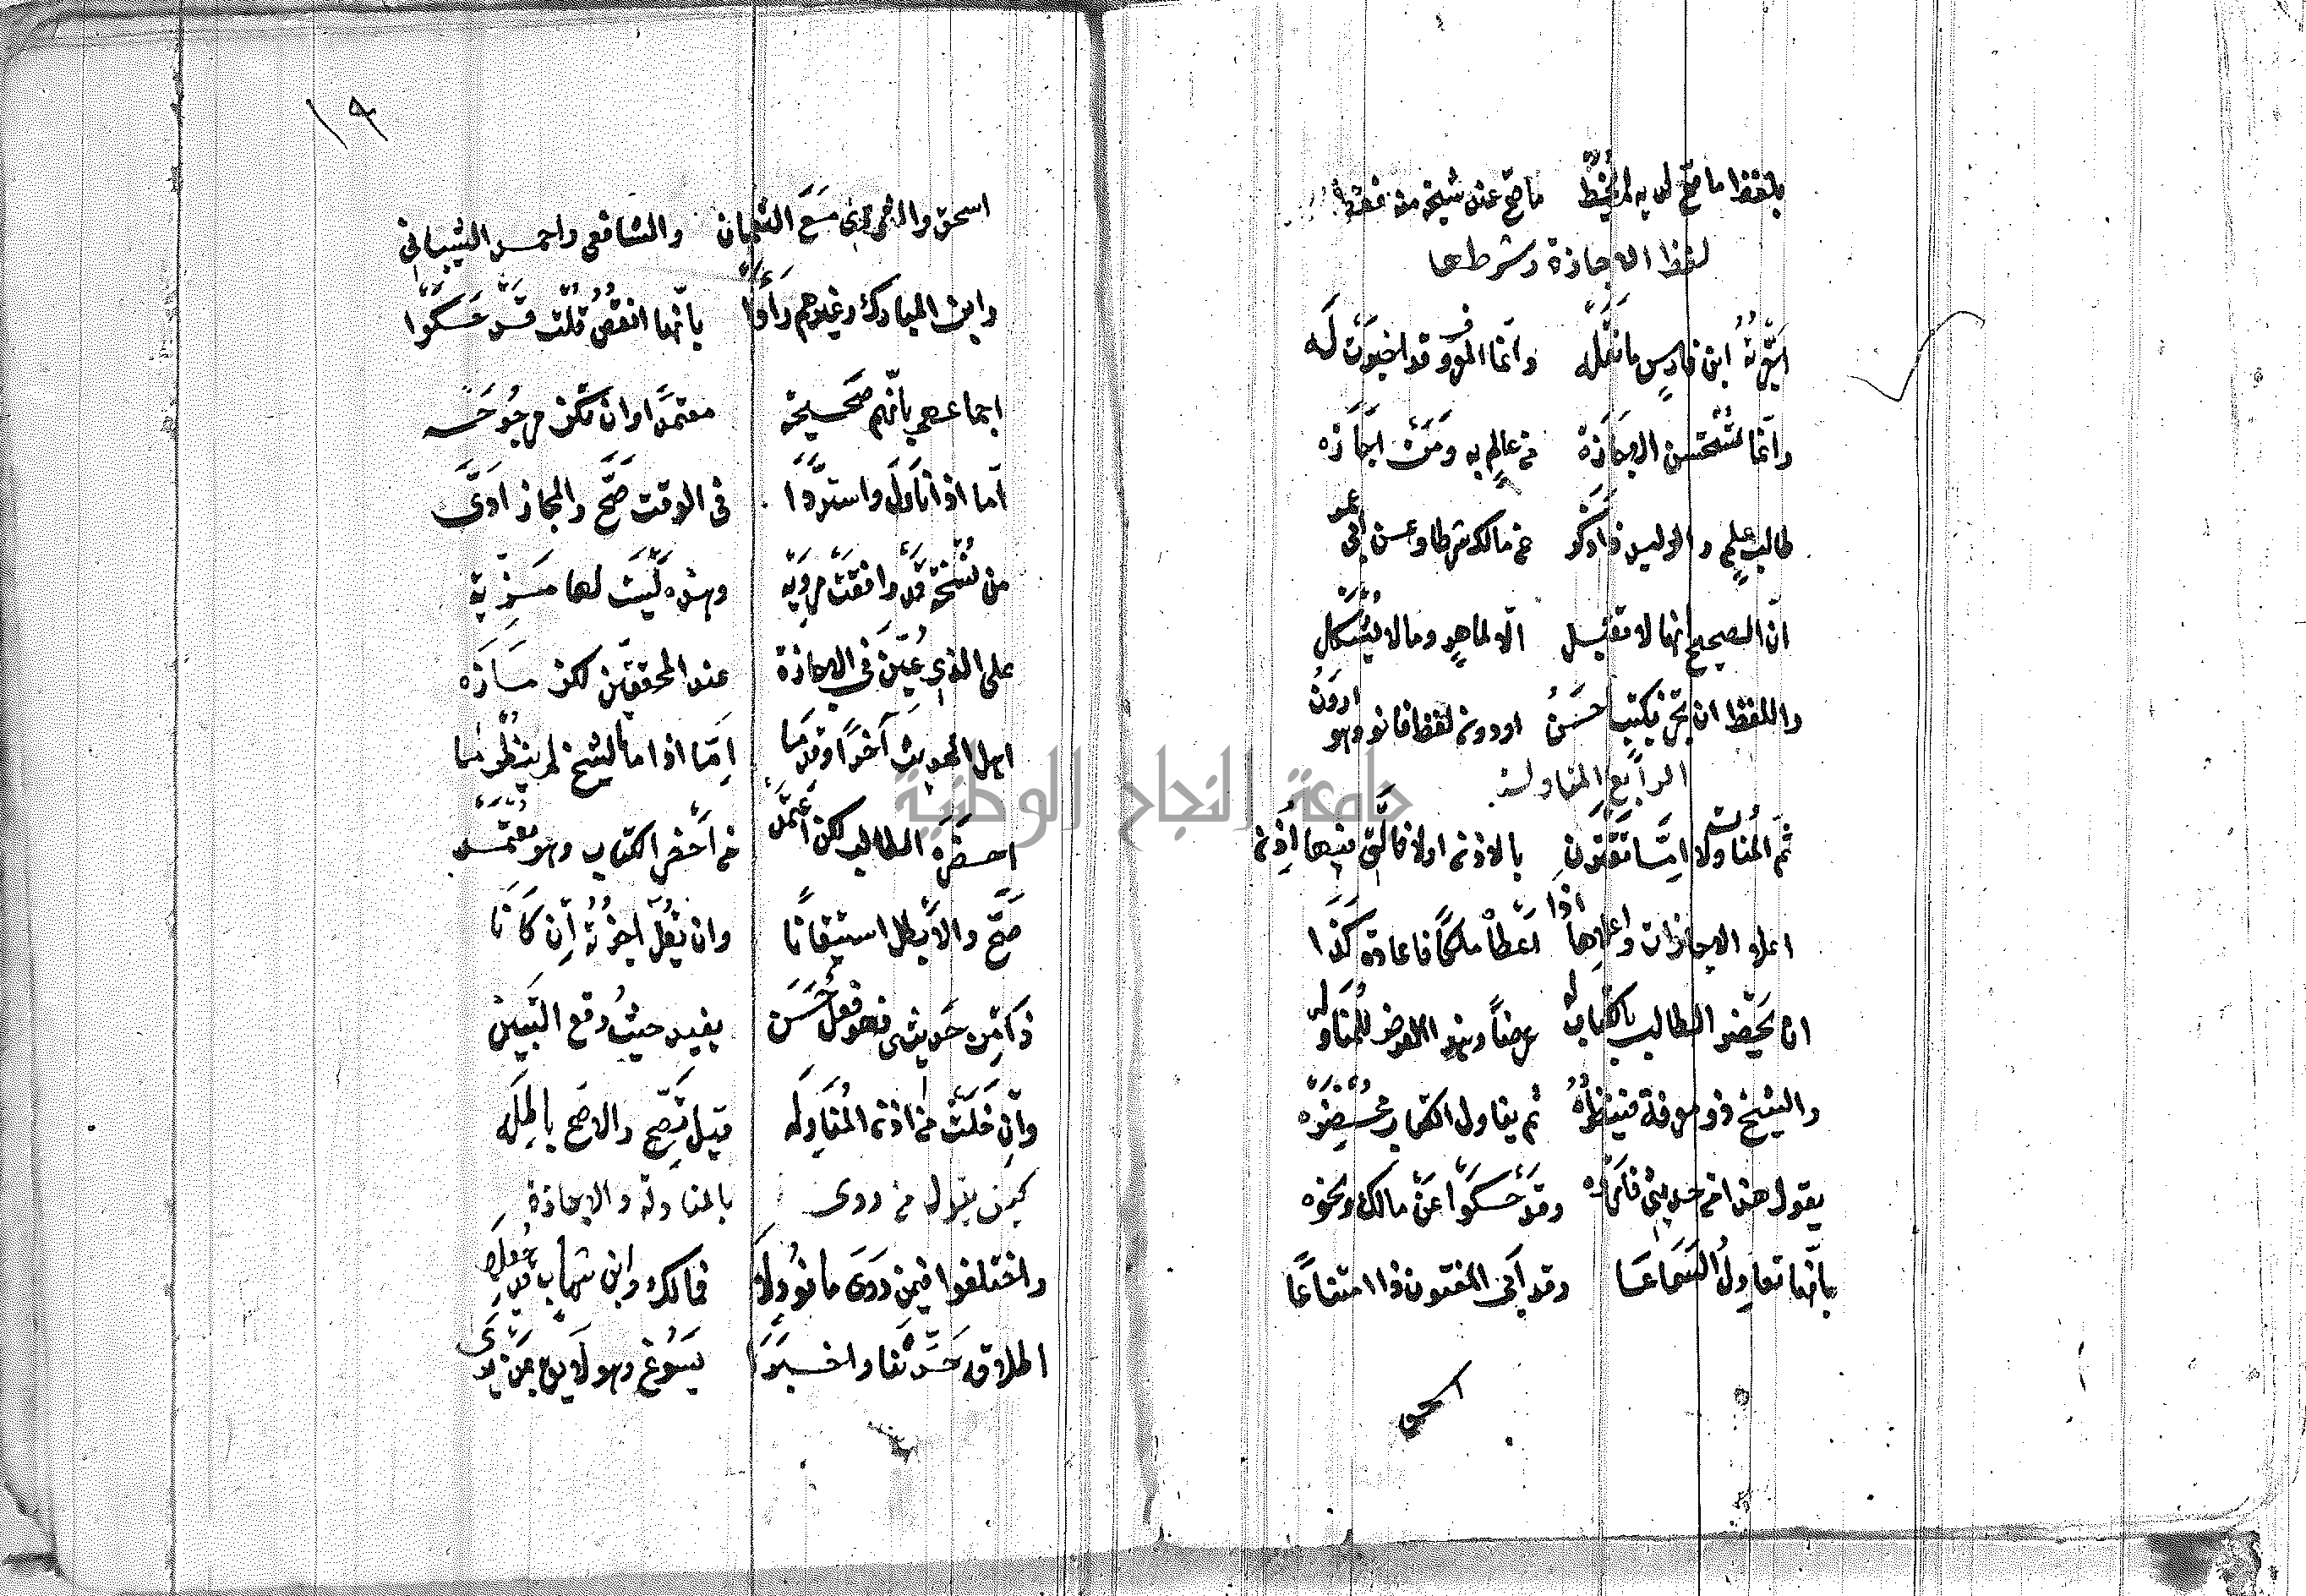 بلفظ ما صح لديه لم يخط ما صح عند شيخه منه فقط
لفظ الاجازة وشرطها
اجزته ابن فارس ما نقله وانما المعروف قد اجزت له
وانما تستحسن الاجازة من عالم به ومن اجازه
طالب علم والوليد ذا ذكر عن مالك شرطا وعن ابي عمر
ان الصحيح انها لا تقبل الا لماهر وما لا يشكل
واللفظ ان تجز بكتب احسن او دون لفظ فانو وهو ادون
الرابع المناولة
ثم المناولات اما تقترن بالاذن او لا فالتي فيها اذن
اعلا الاجازات واعلاها اذا اعطاه ملكا فاعارة كذا
ان يحضر الطالب بالكتاب له عرضا وهذا العرض للمناوله
والشيخ ذو معرفة فينظره ثم يناول الكتاب محضره
يقول هذا من حديثي فاروه وقد حكوا عن مالك ونحوه
بانها تعادل السماعا وقد ابى المفتون ذا امتناعا
اسحق
١٩
اسحق والثوري مع النعمان والشافعي واحمد الشيباني
وابن المبارك وغيرهم راوا بانها انقص قلت قد حكوا
اجماعهم بانهم صحيحه معتمدا وان تكن مرجوحه
اما اذا ناول واستردا في الوقت صح والمجاز ادى
من نسخة قد وافقت مرويه وهذه ليست لها مزية
على الذي عين في الاجازة عند المحققين لكن مازه
اهل الحديث آخرا وقدما اما اذا ما الشيخ لم ينظر ما
احضره الطالب لكن اعتمد من احضر الكتاب وهو معتمد
صح والا بطل استيقانا وان يقل اجزته ان كانا
ذا من حديثي فهو فعل حسن يفيد حيث وقع التبين
وان خلت من اذن المناوله قيل تصح والاصح باطله
كيف يقول من روى بالمناولة والاجازة
واختلفوا فيمن روى ما نوولا فمالك وابن شهاب جعلا
اطلاقه حدثنا واخبرنا يسوغ وهو لايق بمن يرى